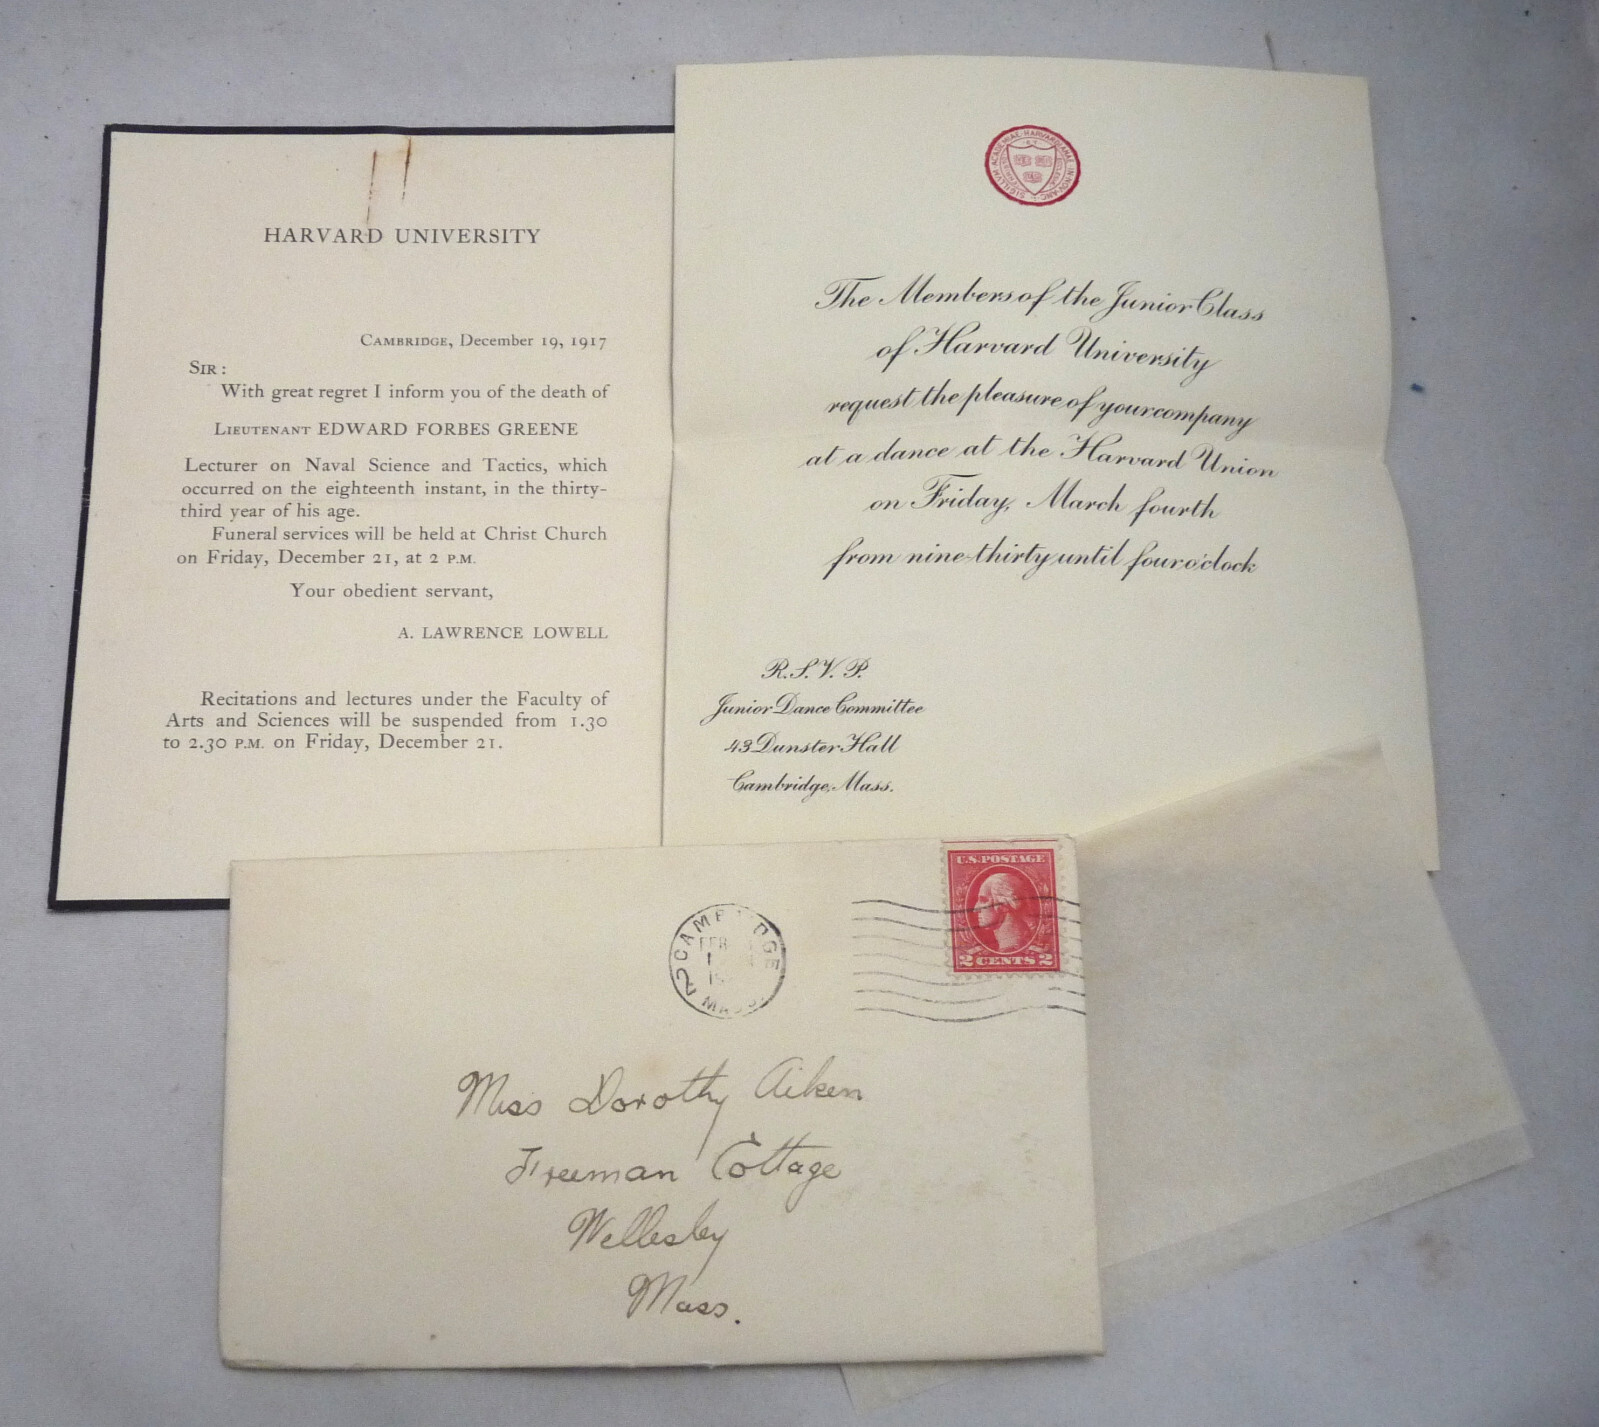 HARVARD UNIVERSITY
CAMBRIDGE, December 19, 1917
SIR:
With great regret I inform you of the death of
LIEUTENANT EDWARD FORBES GREENE
Lecturer on Naval Science and Tactics, which
occurred on the eighteenth instant, in the thirty-
third year of his age.
Funeral services will be held at Christ Church
on Friday, December 21, at 2 P.M.
Your obedient servant,
A. LAWRENCE LOWELL
Recitations and lectures under the Faculty of
Arts and Sciences will be suspended from 1.30
to 2.30 P.M. on Friday, December 21.
The Members of the Junior Class
of Harvard University
request the pleasure of your company
at a dance at the Harvard Union
on Friday, March fourth
from nine-thirty until four o'clock
R.S.V.P.
Junior Dance Committee
43 Dunster Hall
Cambridge, Mass.
U.S. POSTAGE
2 CENTS 2
FEB
Miss Dorothy Aiken
Freeman Cottage
Wellesley
Mass.